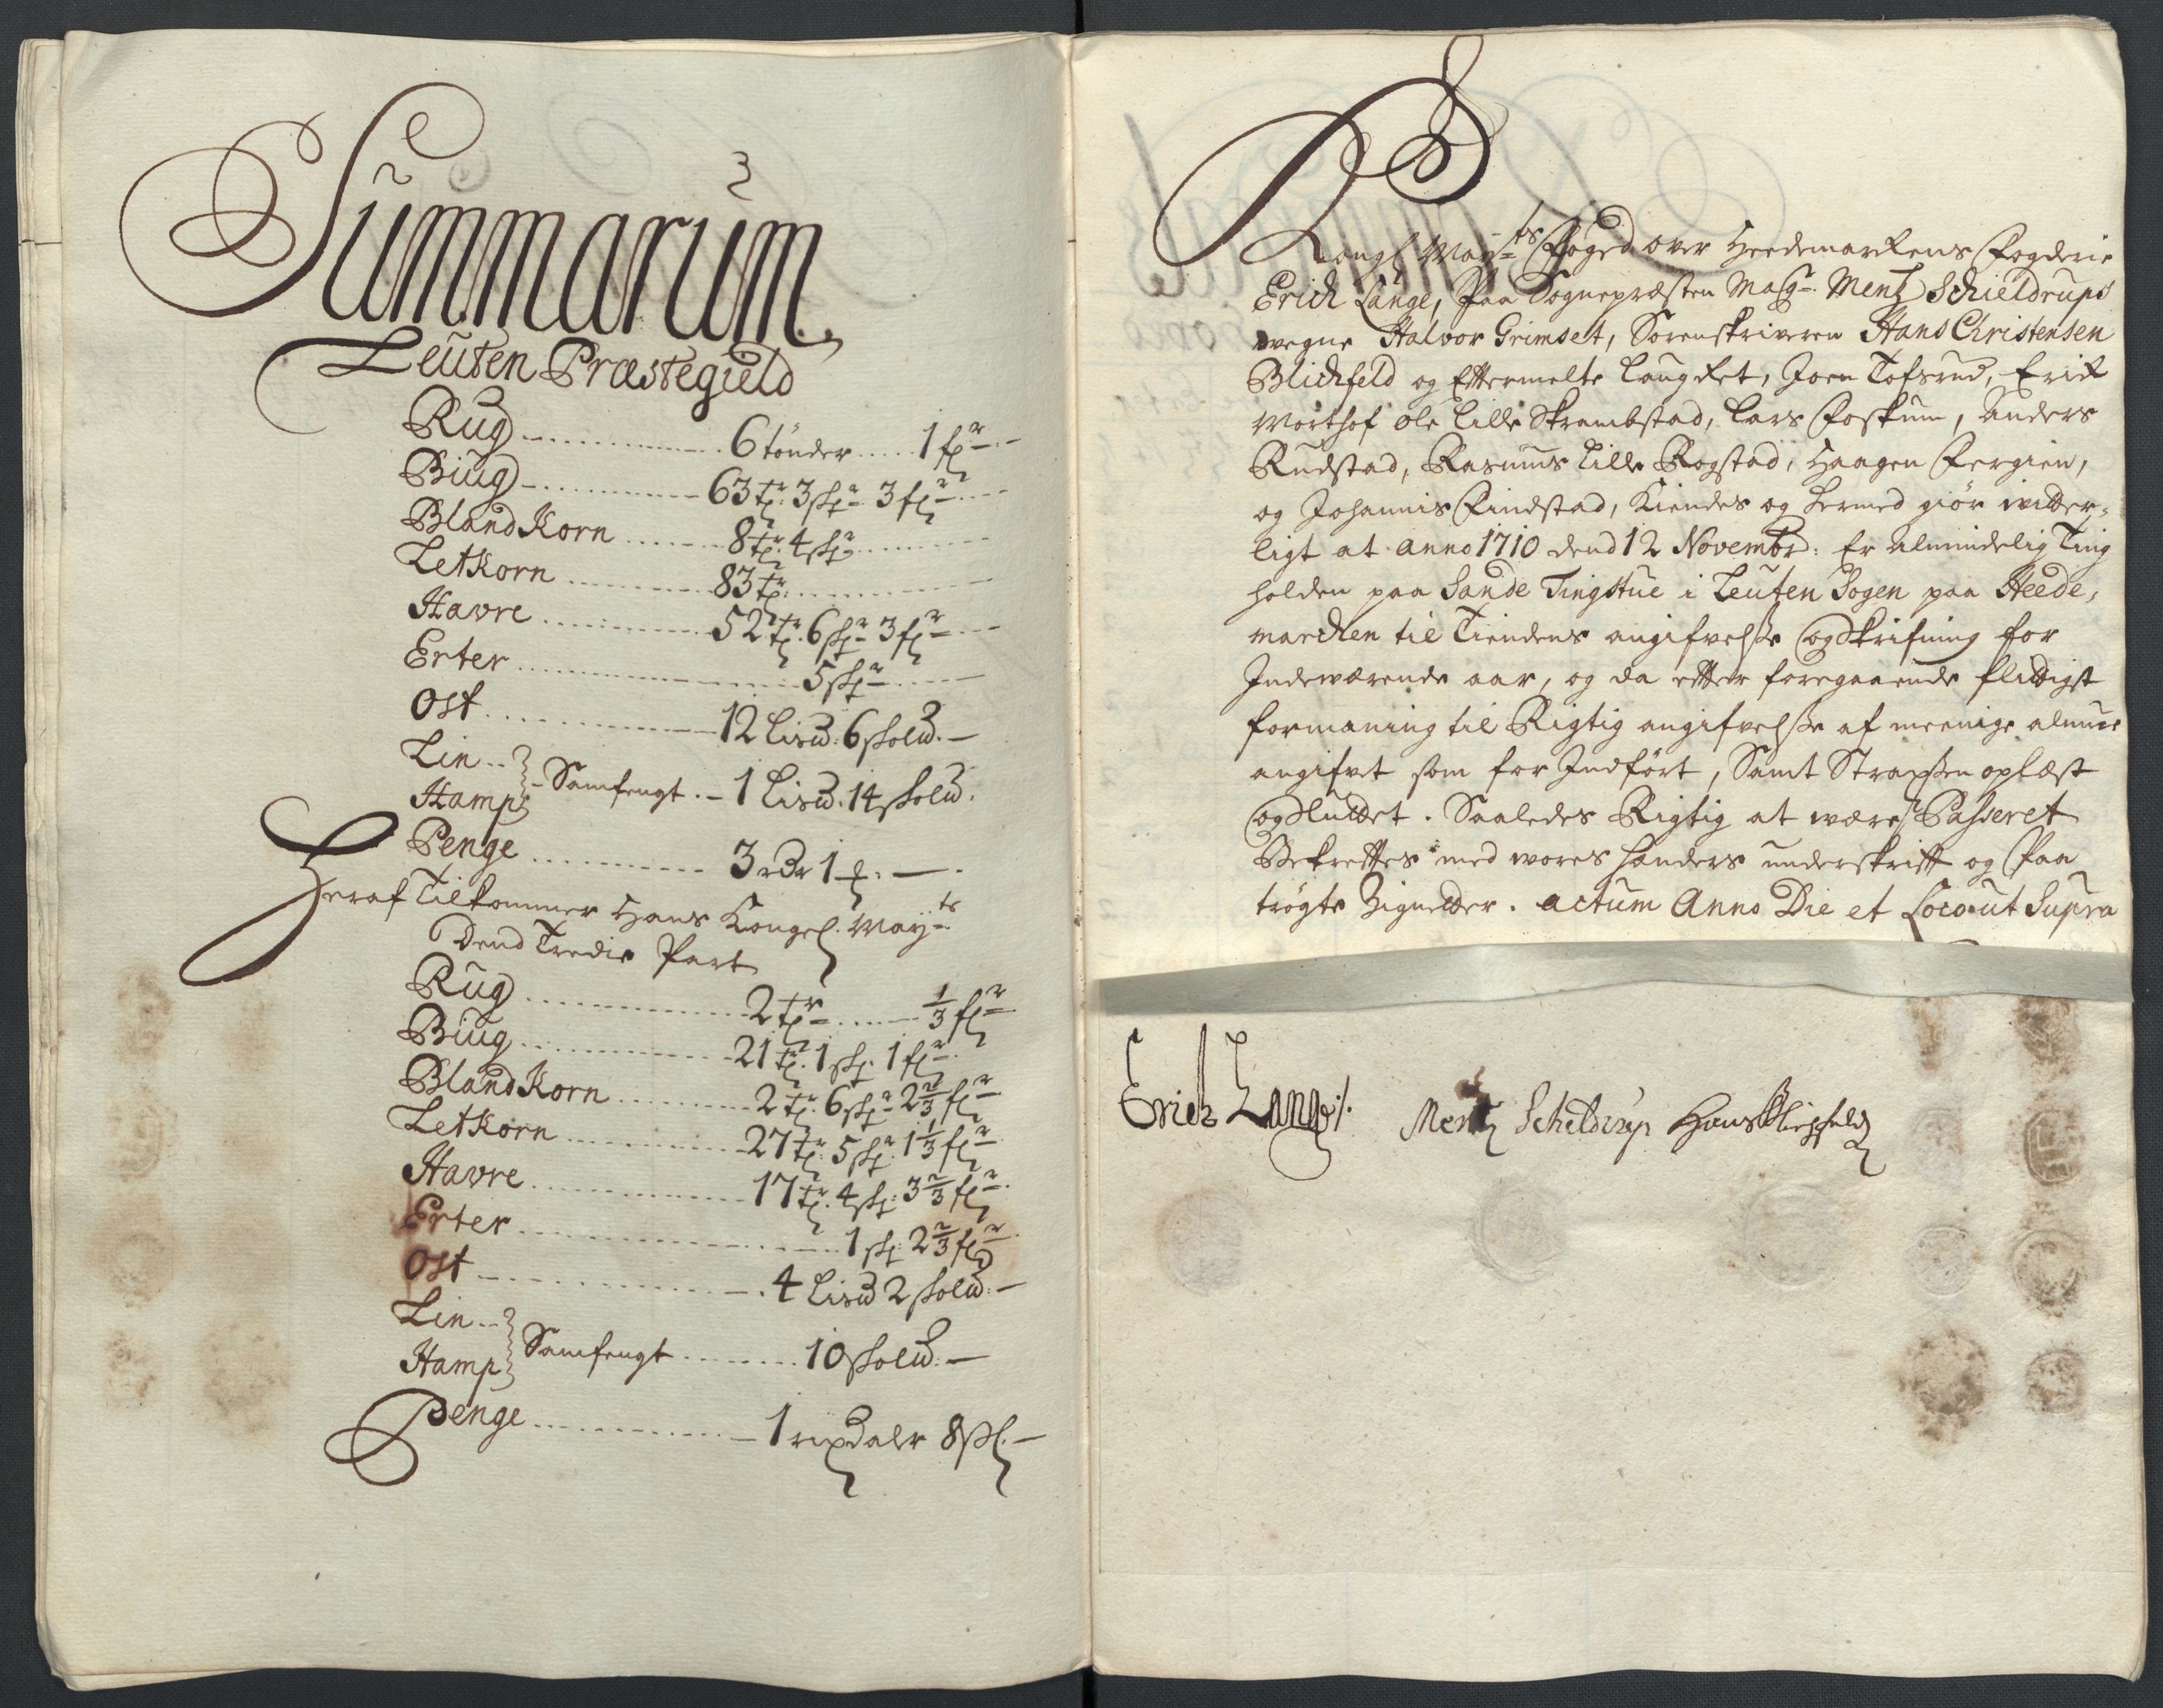 Summarum
Leuten Præstegield
Rug 6 tönder 1 fr
Biug 63 tr: 3 skpr 3 fr
Bland Korn 8 tr: 4 skpr
Letkorn 83 tr:
Havre 52 tr. 6 skpr 3 fr
Erter 5 skpr
Ost 12 Lisd: 6 skold.
Lin
Hamp Samfengt 1 Lisd. 14 skold.
Penge 3 rdr 1
Heraf Tilkommer Hans Kongel. Mayts
Dend Tredie Part
Rug 2 tr 1/3 fr
Biug 21 tr. 1 skp. 1 fr
Bland Korn 2 tr. 6 skpr 2 2/3 fr
Letkorn 27 tr. 5 skpr 1 1/3 fr
Havre 17 tr. 4 skp: 3 2/3 fr
Erter 1 skp: 2 2/3 fr
Ost 4 Lisd 2 skold:
Lin
Hamp Samfengt 10 skold:
Penge 1 rixdaler 8 sk.
Kongl Mayts Foged over Heedemarkens Fogderie
Erich Lange, Paa Sognepræsten Magr. Mentz Schieldrups
vegne Halvor Grimset, Sorenskriveren Hans Christensen
Blichfeld og Eftermelte Laug Ret, Joen Tofsrud, Erik
Worthof Ole Lille Skrambstad, Lars Foskum, Anders
Rudstad, Rasmus Lille Rogstad, Haagen Fergien,
og Johannis Findstad, Kiendes og hermed giör witter-
ligt at anno 1710 dend 12 Novembr: Er Almindelig Ting
holden paa Sande Tingstue i Leuten Sogen paa Heede,
marcken til Tiendens angifvelsse og Skrifning for
Indeværende aar, og da efter foregaaende flittigst
formaning til Rigtig angifvelsse af meenige almue
angifvet som for Indfört, Samt Straxsen oplæst
og Sluttet. Saaledes Rigtig at være Passeret
Bekreftes med vores hænders underskrift og Paa
trögte Zignetter. actum Anno Die et Loco ut Supra
Erich Lange
Mentz Scheldrup
Hans Blichfeld